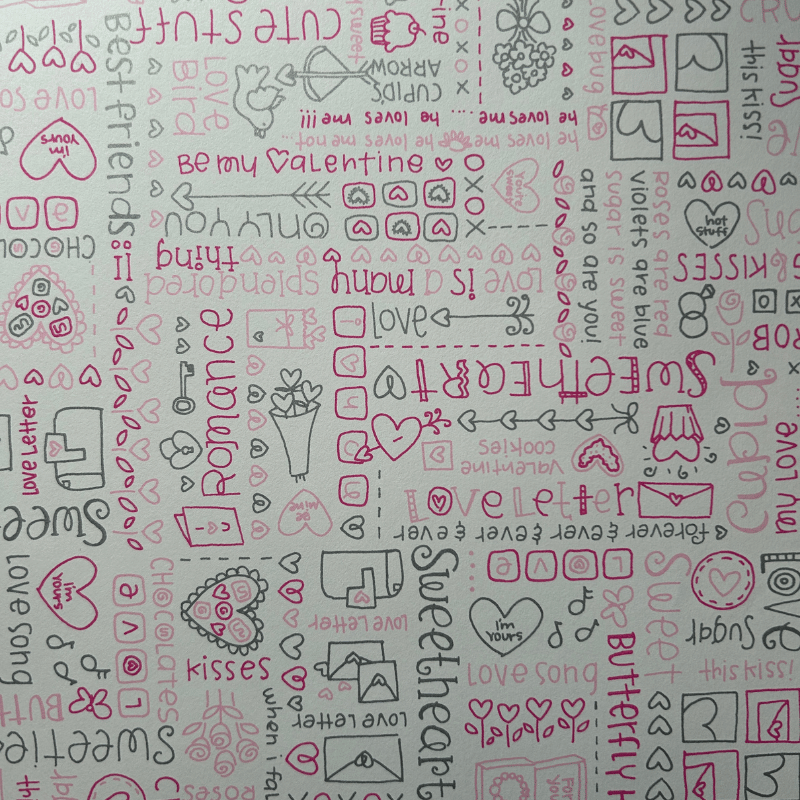 CUTE STUFF
sweet
Best friends
Love Bird
CUPID'S
ARROW
Lovebug
this kiss!
he loves me.... he loves me!!!
he loves me he loves me not...
i'm yours
Be my Valentine
yours sweet
Only you
Love is a many splendored thing
Roses are red
violets are blue
sugar is sweet
and so are you!
hot stuff
& KISSES
Love
Romance
SWEETHEART
Love Letter
valentine
cookies
Cupid
MY LOVE
Be mine
Love Letter
forever & ever & ever & ever & ever
i'm yours
Love song
CHOCOLATES
kisses
Love Letter
Love Letter
Sweetheart
L O V E
I'm yours
Love song
Butterfly
Sweet
Sugar
LOVE
this kiss!
Sweeties
ROSES
when i fal
For you